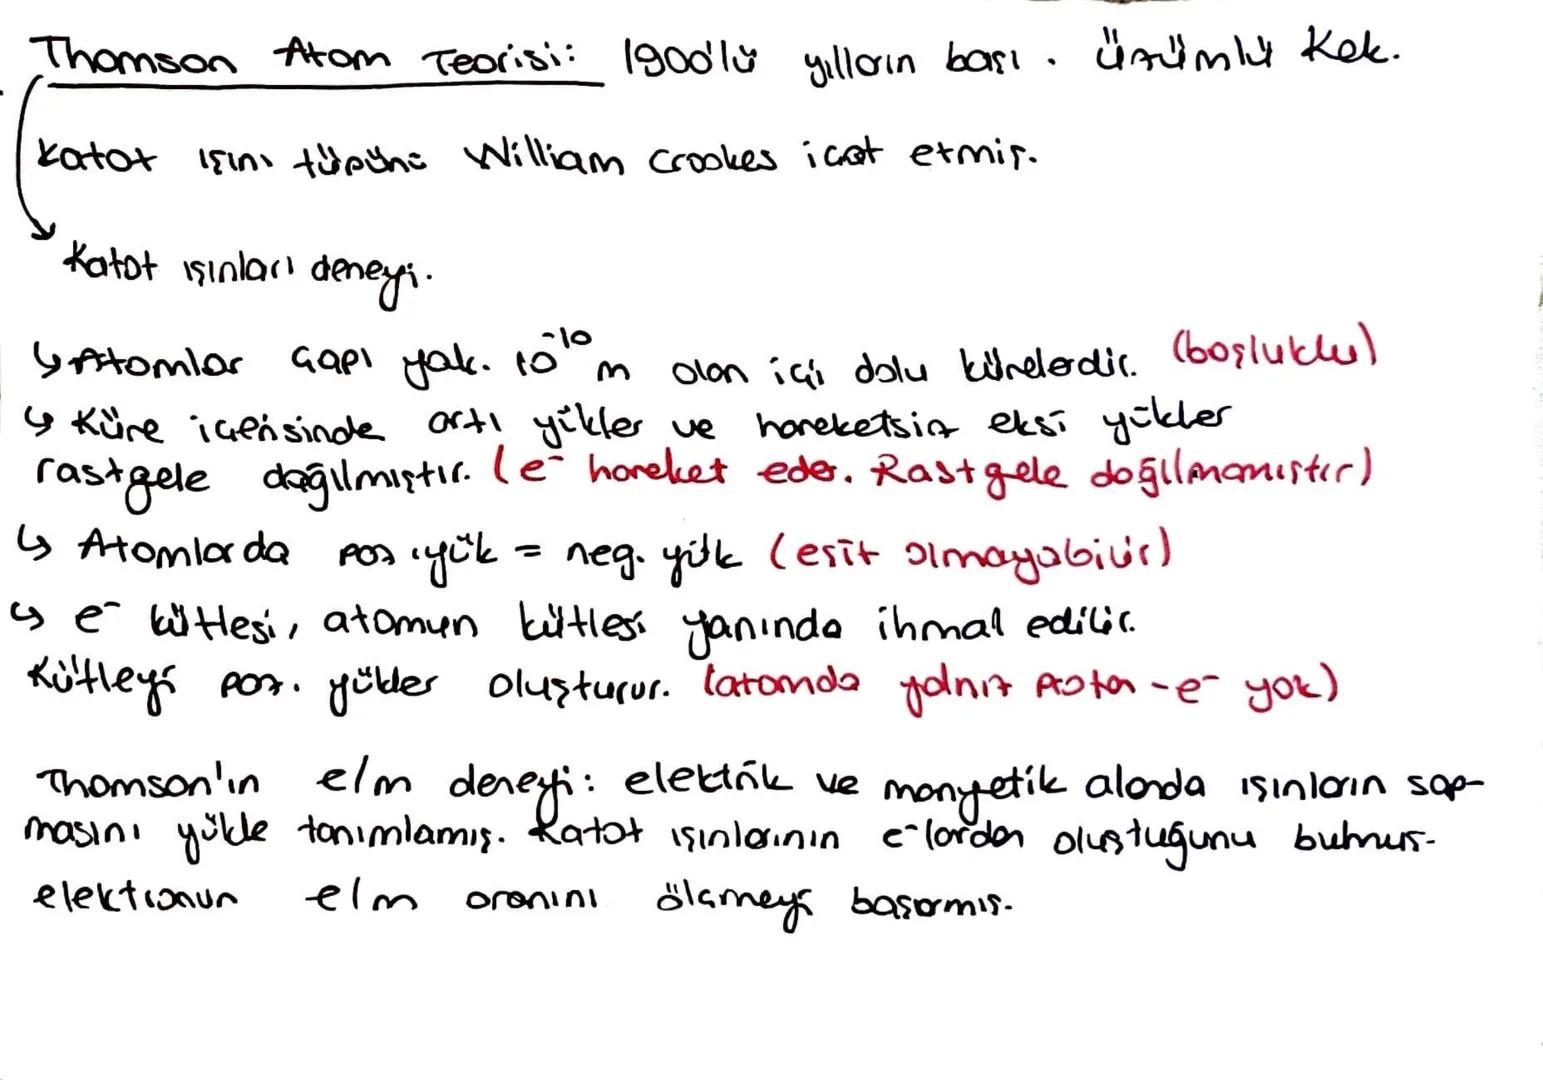 Thomson Atom Teorisi: 1900'lü yılların başı. Üzümlü Kek.
Katot ışını tüpünü William Crookes icat etmiş.
Katot ışınları deneyi.
↳ Atomlar çapı yak. 10⁻¹⁰ m olan içi dolu kürelerdir. (boşluklu)
↳ Küre içerisinde artı yükler ve hareketsiz eksi yükler
rastgele dağılmıştır. (e⁻ hareket eder. Rastgele dağılmamıştır)
↳ Atomlarda poz. yük = neg. yük (eşit olmayabilir)
↳ e⁻ kütlesi, atomun kütlesi yanında ihmal edilir.
Kütleyi poz. yükler oluşturur. (atomda yalnız proton - e⁻ yok)
Thomson'ın e/m deneyi: elektrik ve manyetik alanda ışınların sap-
masını yükle tanımlamış. Katot ışınlarının e⁻lardan oluştuğunu bulmuş.
elektronun e/m oranını ölçmeyi başarmış.